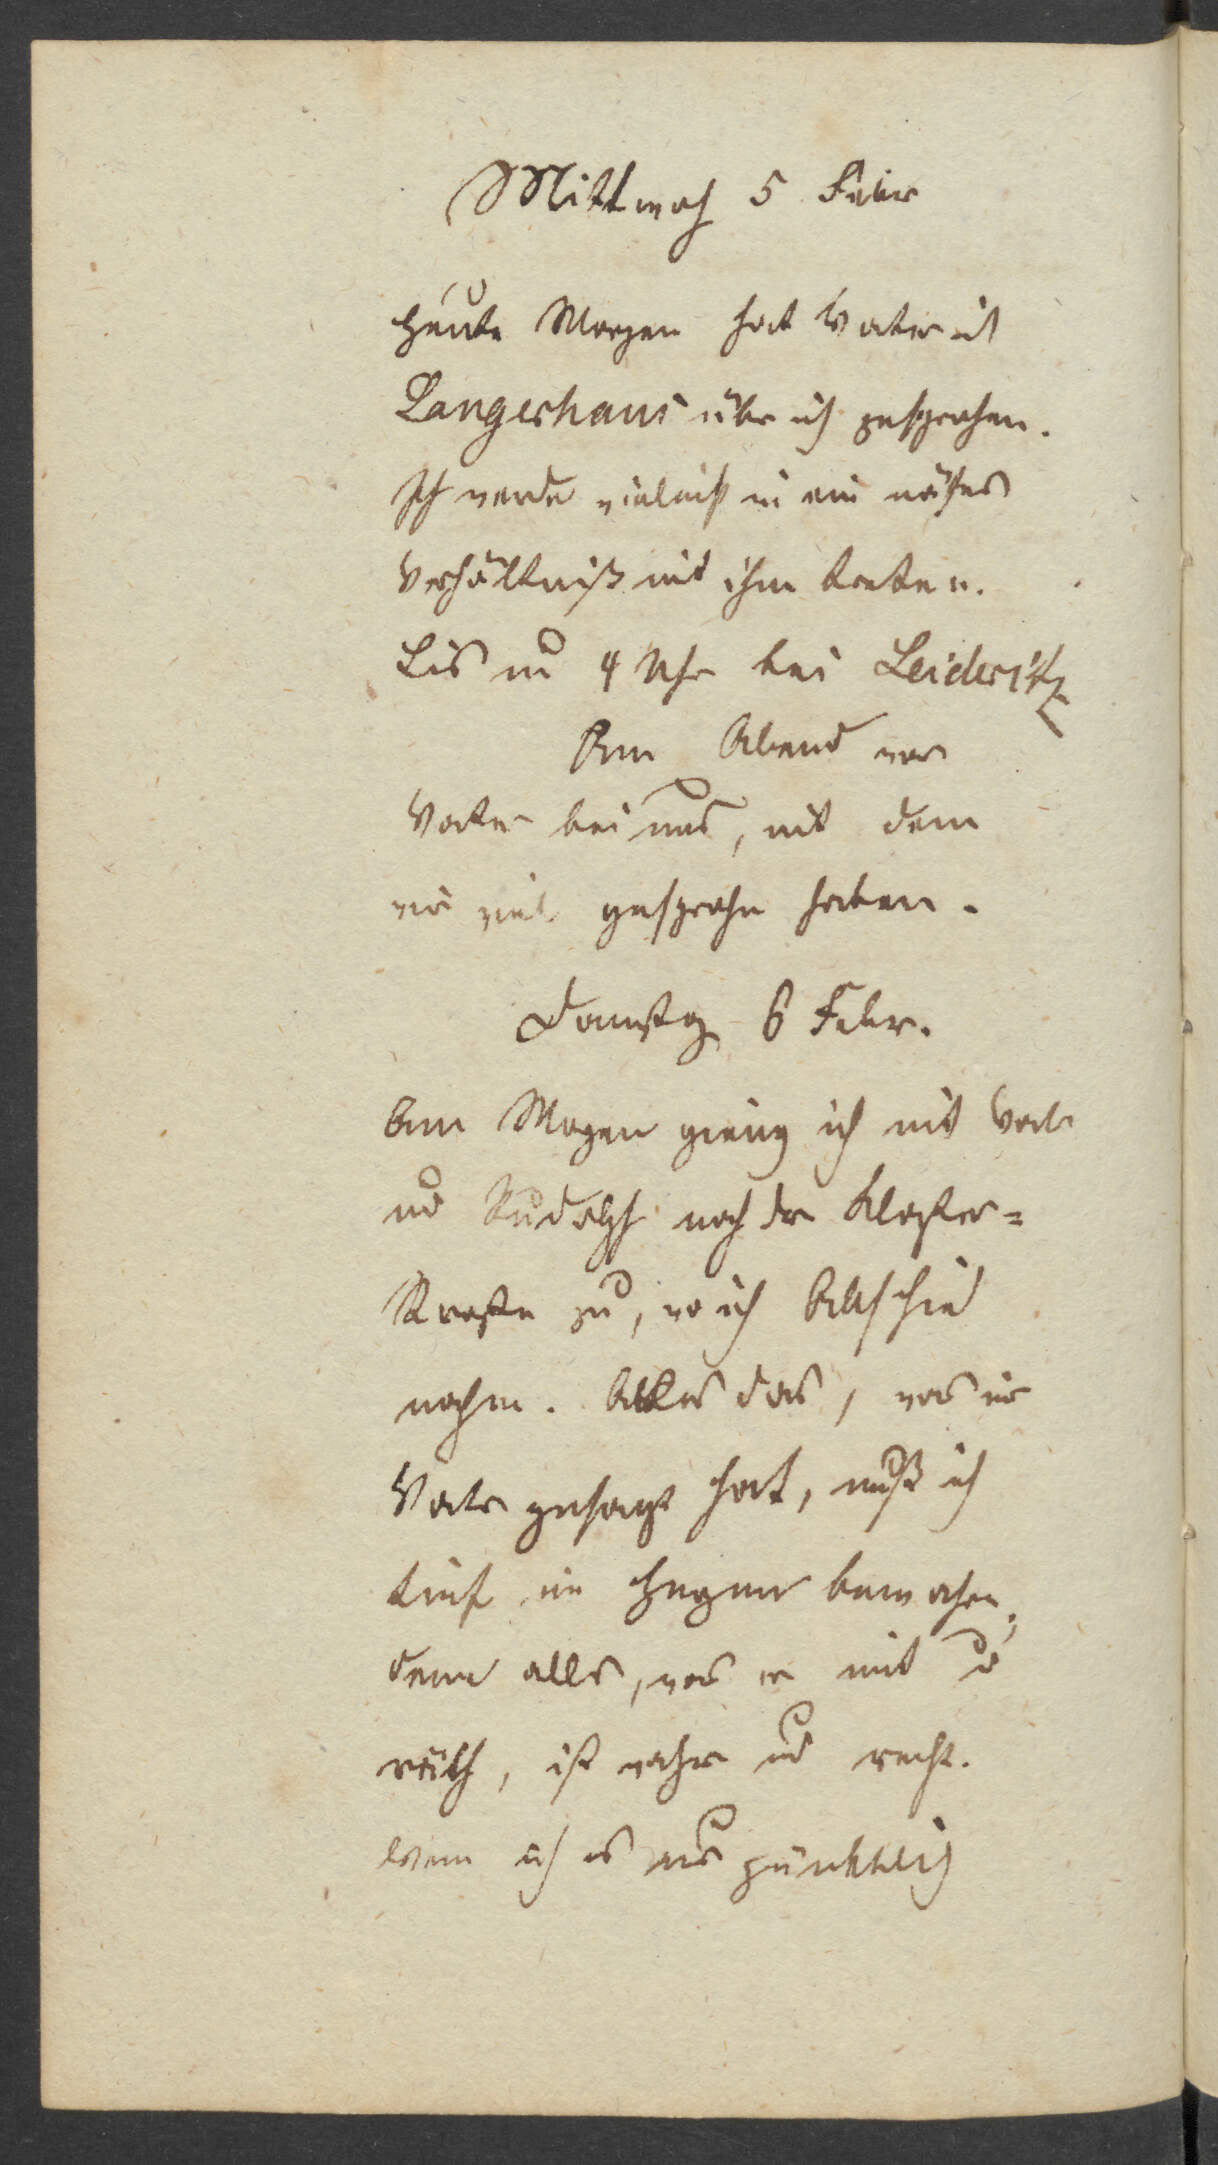 Mittwoch 5 Febr
Heute Morgen hat Vater mit
Langerhans über ich gesprochen.
Ich werde vieleicht in ein näheres
Verhältniß mit ihm treten.
Bis um 4 Uhr bei Leideritz
Am Abend war
Vater bei uns, mit dem
wir viel gesprochn haben.
Donnstg 6 Febr.
Am Morgen gieng ich mit Vater
und Rudolph nach der Kloster=
Straße zu, wo ich Abschied
nahm. Alles das, was mir
Vater gesagt hat, muß ich
tief im Herzen bewahren,
denn alles, was er mit
räth, ist wahr und recht.
Wenn ich es nur pünktlich